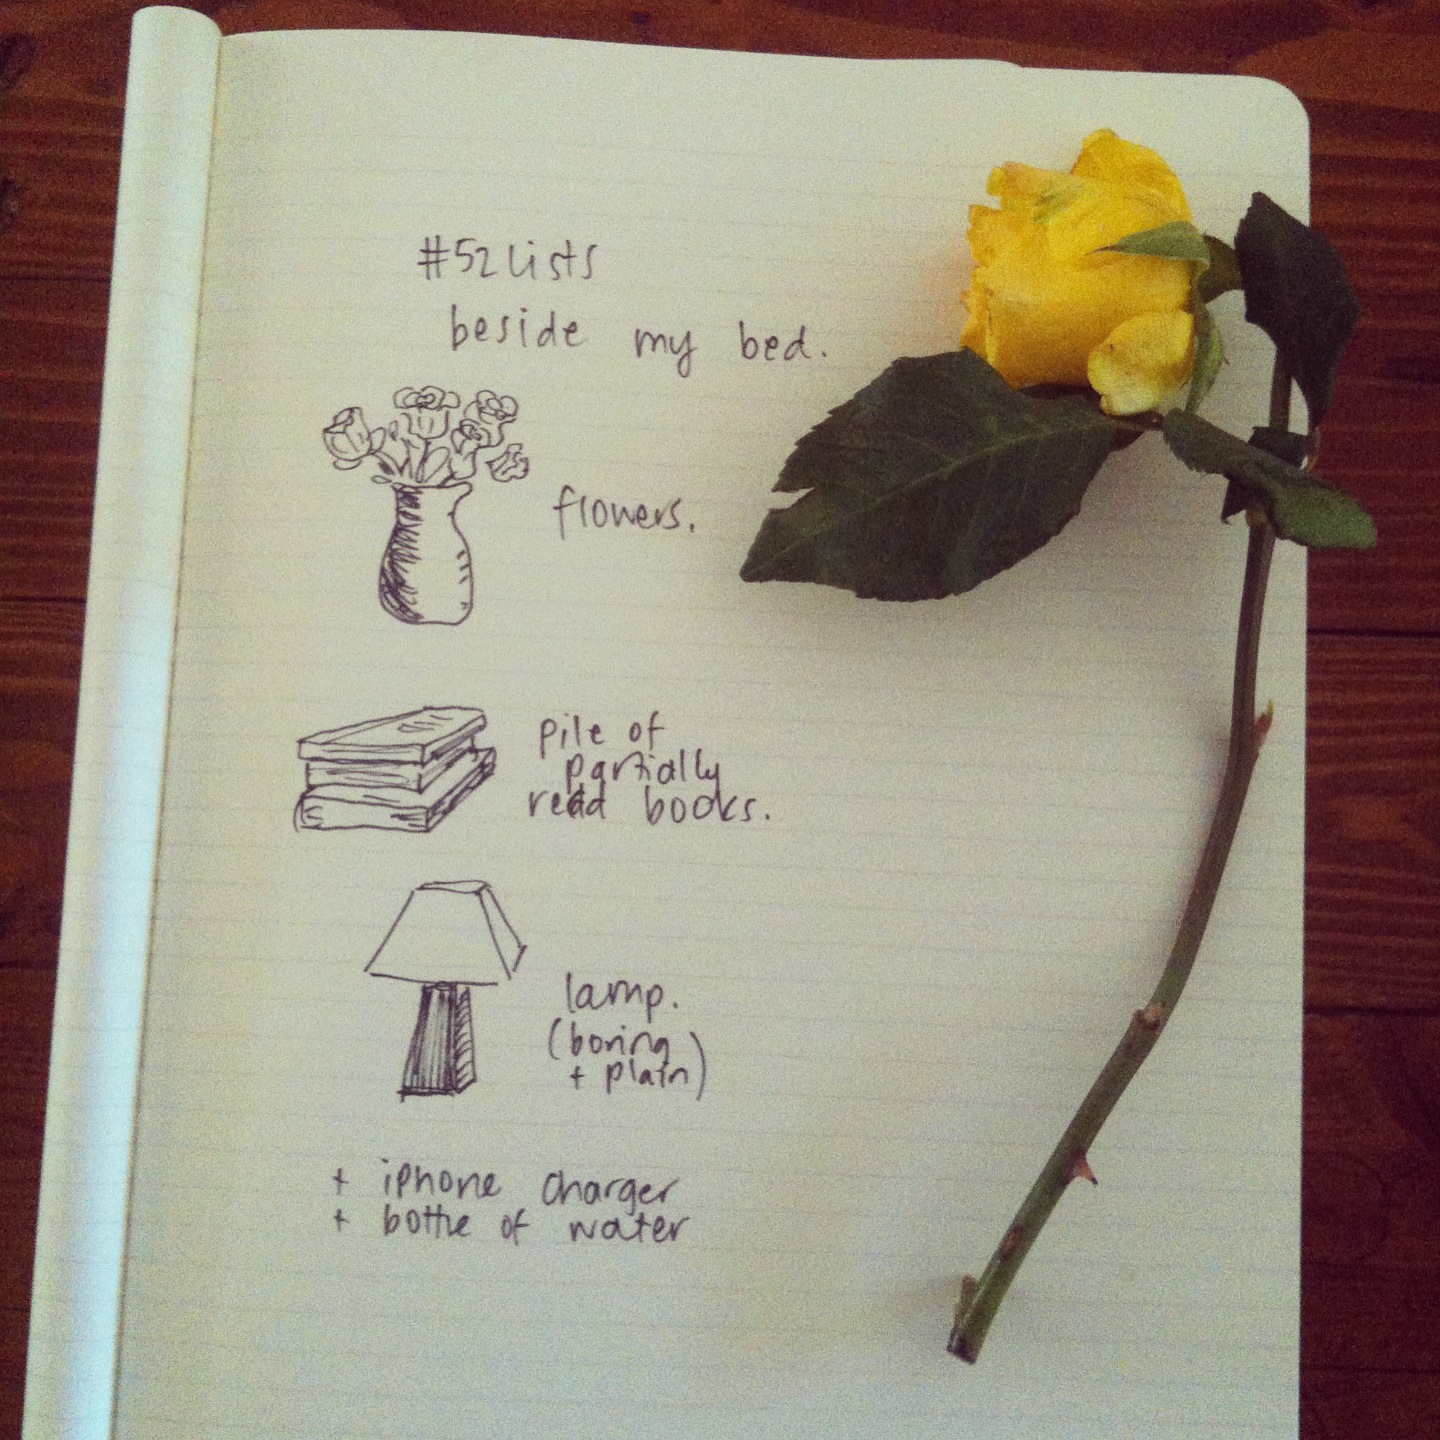 #52lists
beside my bed.
flowers.
pile of
partially
read books.
lamp.
(boring
+ plain)
+ iphone charger
+ bottle of water